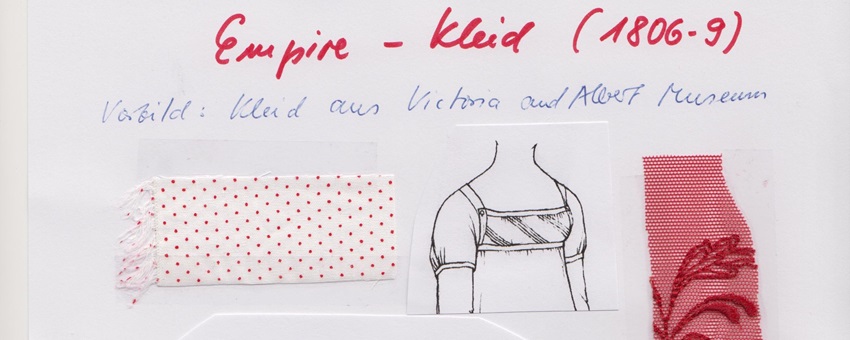 Empire - Kleid (1806-9)
Vorbild: Kleid aus Victoria and Albert Museum